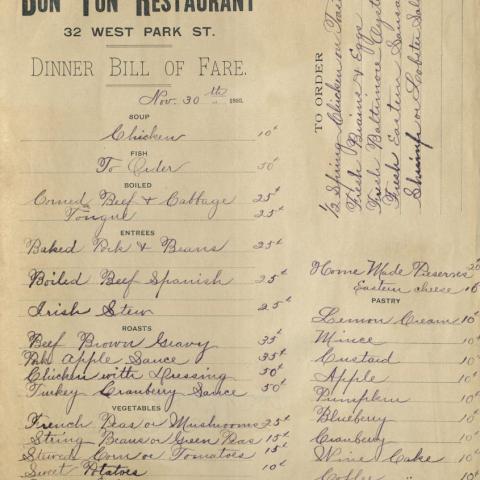 BON TON RESTAURANT
32 WEST PARK ST.
DINNER BILL OF FARE.
Nov. 30th
SOUP
Chicken 10¢
FISH
To Order 50¢
BOILED
Corned Beef & Cabbage 25¢
Tongue 25¢
ENTREES
Baked Pork & Beans 25¢
Boiled Beef Spanish 25¢
Irish Stew 25¢
ROASTS
Beef Brown Gravy 35¢
Pork Apple Sauce 35¢
Chicken with Dressing 50¢
Turkey Cranberry Sauce 50¢
VEGETABLES
French Peas or Mushrooms 25¢
String Beans or Green Peas 15¢
Stewed Corn or Tomatoes 15¢
Sweet Potatoes 10¢
TO ORDER
1/2 Spring Chicken on
Fresh Brains & Eggs
Fresh Baltimore
Fresh Eastern
Shrimp or Lobster
Home Made Preserves
Eastern cheese
PASTRY
Lemon Cream 10¢
Mince 10¢
Custard 10¢
Apple 10¢
Pumpkin 10¢
Blueberry 10¢
Cranberry 10¢
Wine Cake 10¢